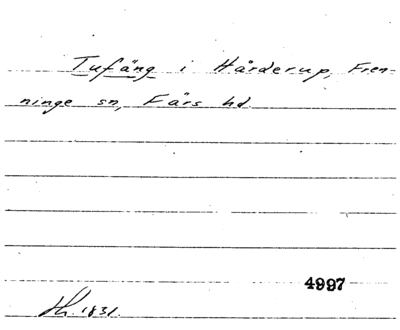 Tufäng i Hårderup, Fren-
ninge sn, Färs hd
4997
1831.